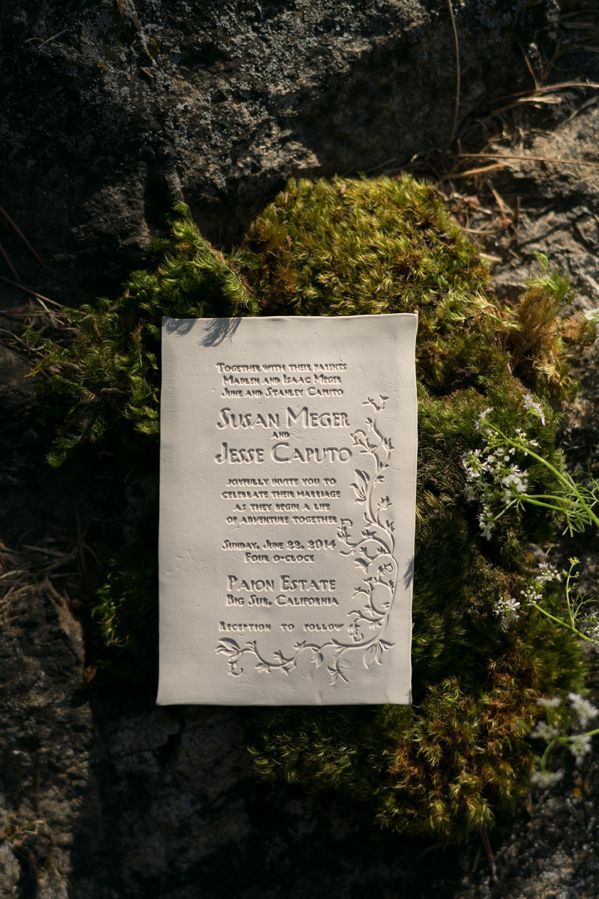 Together with their parents
Madlen and Isaac Meger
June and Stanley Caputo
Susan Meger
and
Jesse Caputo
joyfully invite you to
celebrate their marriage
as they begin a life
of adventure together
Sunday, June 22, 2014
Four o'clock
Paion Estate
Big Sur, California
Reception to follow